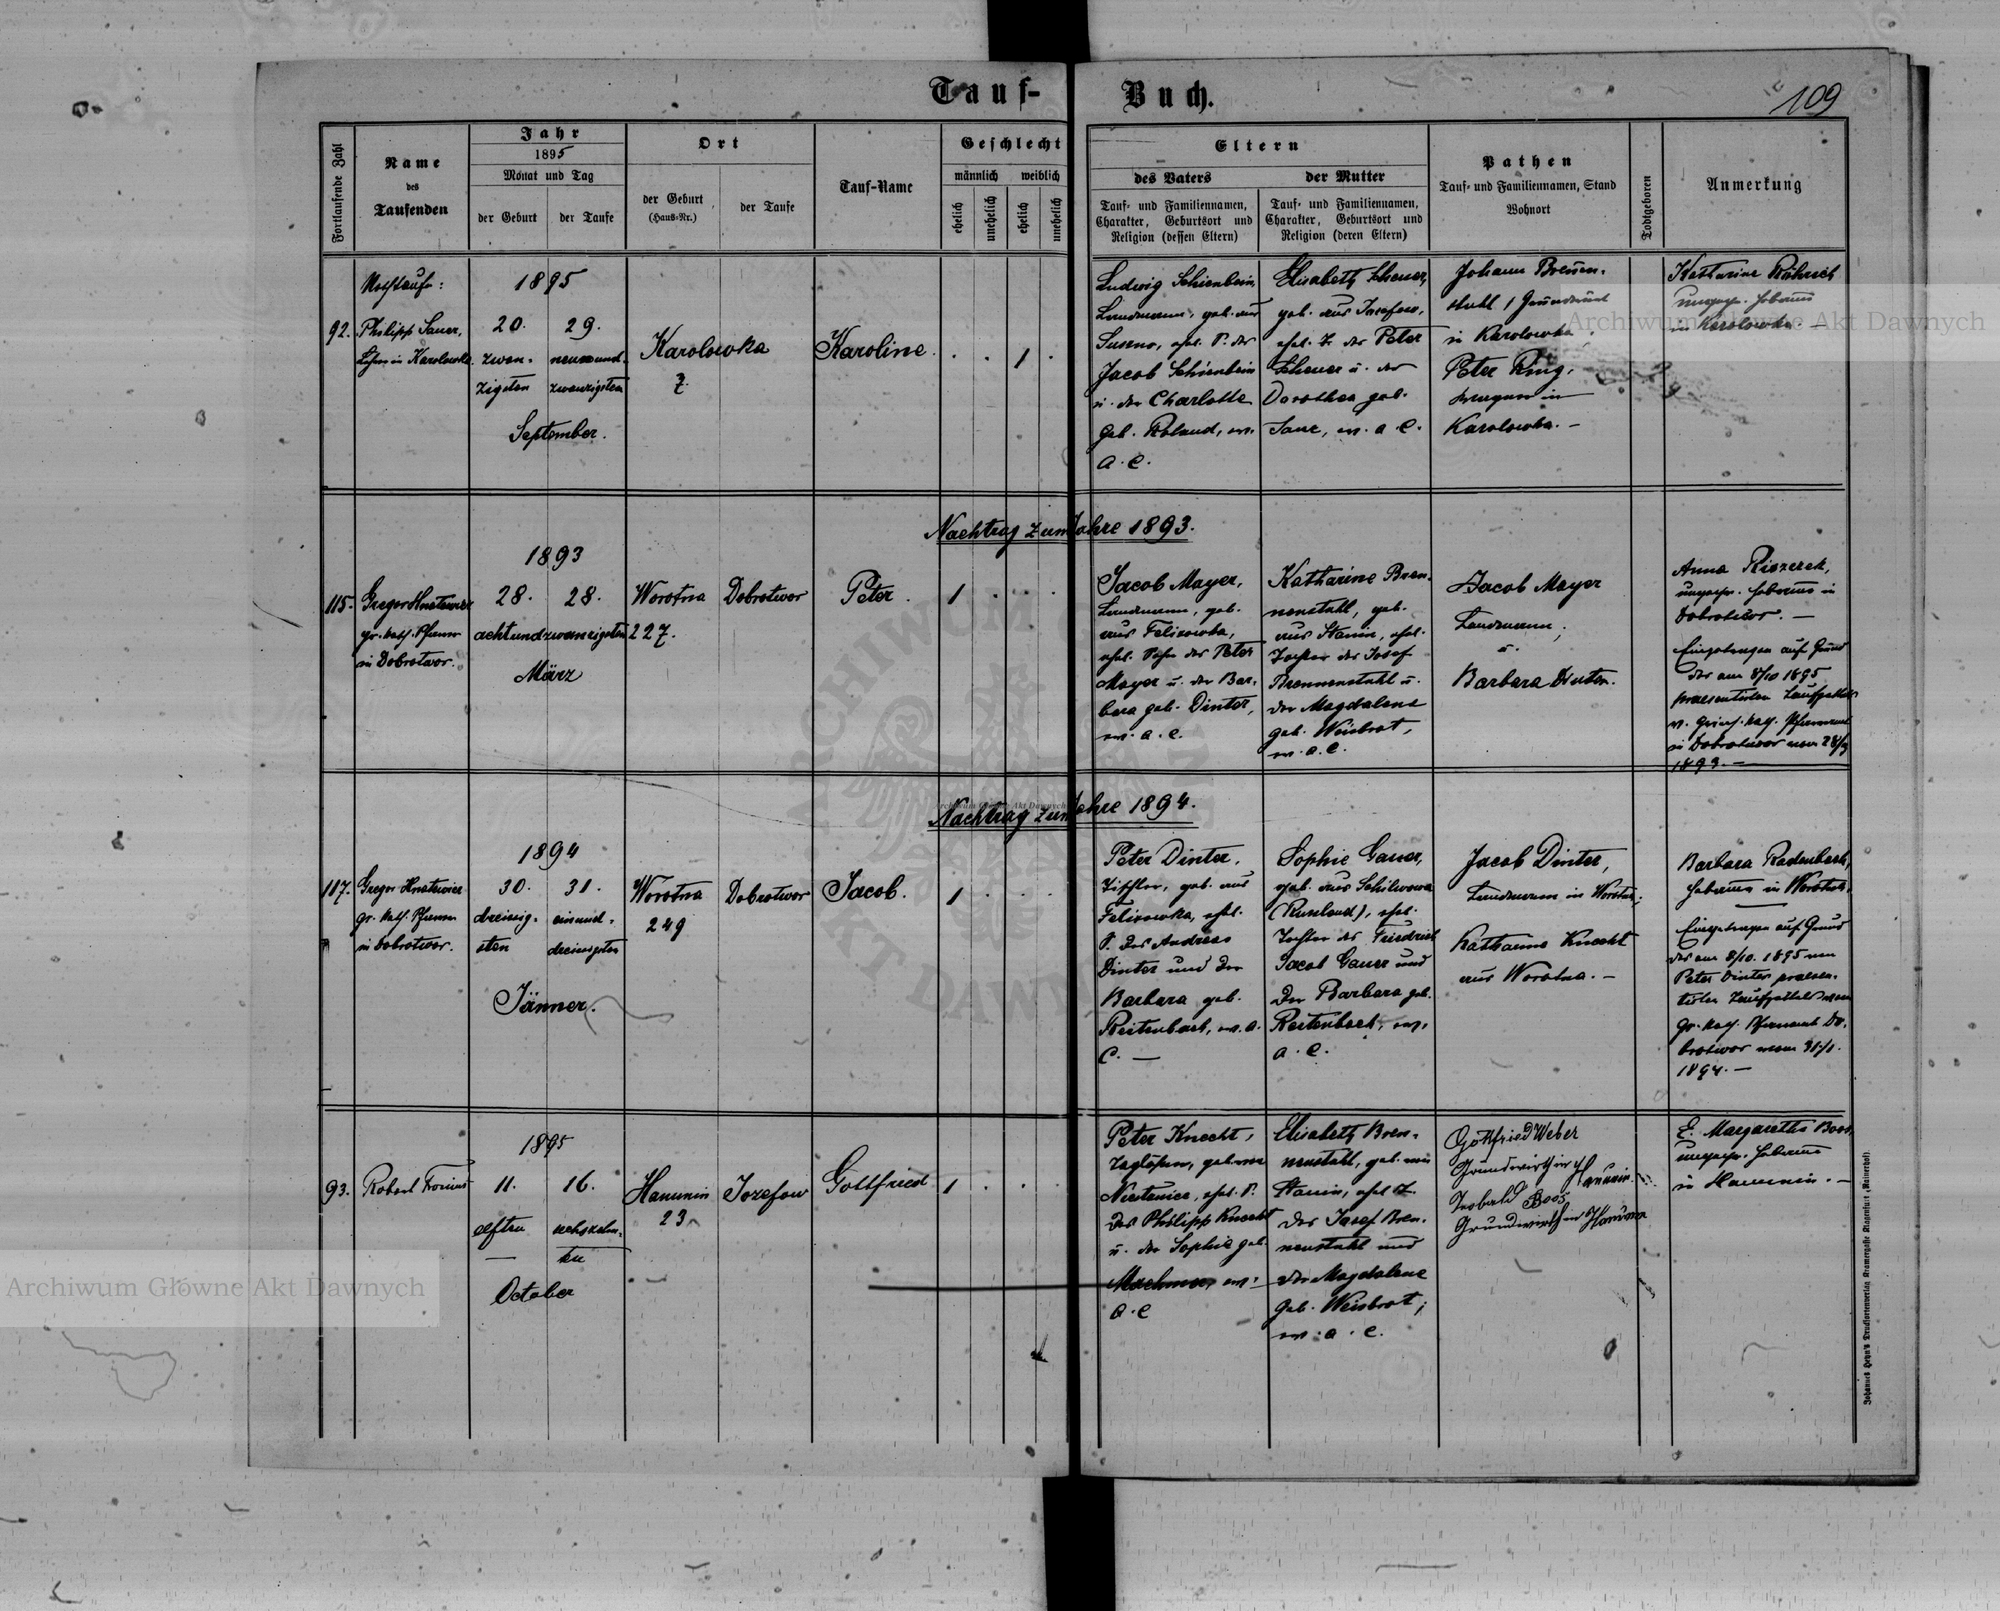 Tauf-Buch.
109
Fortlaufende Zahl
Name
des
Taufenden
Jahr
1895
Monat und Tag
der Geburt
der Taufe
Ort
der Geburt
(Haus-Nr.)
der Taufe
Tauf-Name
Geschlecht
männlich
weiblich
ehelich
unehelich
ehelich
unehelich
Eltern
des Vaters
Tauf- und Familiennamen,
Charakter, Geburtsort und
Religion (dessen Eltern)
der Mutter
Tauf- und Familiennamen,
Charakter, Geburtsort und
Religion (deren Eltern)
Pathen
Tauf- und Familiennamen, Stand
Wohnort
Todtgeboren
Anmerkung
92.
Nothtaufe:
Philipp Sauer,
Lehrer in Karolowka.
1895
20. 29.
zwan- neunund-
zigsten zwanzigsten
September.
Karolowka
7.
Karoline.
1
Ludwig Schienbein,
Landmann, geb. aus
ehel. S. des
Jacob Schienbein
u. der Charlotte
geb. Roland, ev.
a. C.
Elisabeth Scheuer,
geb. aus Josefow,
ehel. T. des Peter
Scheuer u. der
Dorothea geb.
ev. a. C.
Johann Brenn-
stuhl, Grundwirt
in Karolowka
Peter Ring,
in
Karolowka. –
Katharine
ungepr. Hebamme
in Karolowka. –
Nachtrag zum Jahre 1893.
115.
Gregor Hnatewicz
gr. kath. Pfarrer
in Dobrotwor.
1893
28. 28.
achtundzwanzigsten
März
Worotna
227.
Dobrotwor
Peter.
1
Jacob Mayer,
Landmann, geb.
aus Felixowka,
ehel. Sohn des Peter
Mayer u. der Bar-
bara geb. Dinter,
ev. a. C.
Katharine Bren-
nenstuhl, geb.
aus Stanin, ehel.
Tochter des Josef
Brennenstuhl u.
der Magdalena
geb. Weisbrot,
ev. a. C.
Jacob Mayer
Landmann,
u.
Barbara Dinter.
Anna
ungepr. Hebamme in
Dobrotwor. –
Eingetragen auf Grund
des am 8/10 1895
praesentirten Taufzettels
v. griech. kath. Pfarramt
in Dobrotwor vom 28/
1893. –
Nachtrag zum Jahre 1894.
117.
Gregor Hnatewicz
gr. kath. Pfarrer
in Dobrotwor.
1894
30. 31.
dreissig- einund-
sten dreissigsten
Jänner.
Worotna
249
Dobrotwor
Jacob.
1
Peter Dinter,
Tischler, geb. aus
Felixowka, ehel.
S. des Andreas
Dinter und der
Barbara geb.
Reitenbach, ev. a.
C. –
Sophie Gauer,
geb. aus
(Russland), ehel.
Tochter des Friedrich
Jacob Gauer und
der Barbara geb.
ev.
a. C.
Jacob Dinter,
Landmann in Worotna;
Katharine Knecht
aus Worotna. –
Barbara Radenbach,
Hebamme in Worotna.
Eingetragen auf Grund
des am 8/10. 1895 von
Peter Dinter praesen-
tirten Taufzettels vom
gr. kath. Pfarramt Do-
brotwor vom 31/1.
1894. –
93.
Robert Fronius
1895
11. 16.
elften sechszehn-
ten
October
Hanunin
23
Jozefow
Gottfried
1
Peter Knecht,
Taglöhner, geb. aus
ehel. S.
des Philipp Knecht
u. der Sophie geb.
ev.
a. C
Elisabeth Bren-
nenstuhl, geb. aus
Stanin, ehel. T.
des Josef Bren-
nenstuhl und
der Magdalena
geb. Weisbrot,
ev. a. C.
Gottfried Weber
Grundwirth in Hanunin.
Boos,
Grundwirth in Hanunin
E. Margaretha Boos,
ungepr. Hebamme
in Hanunin. –
Johannes Heyn's Drucksortenverlag Kramergasse Klagenfurt (Rainerhof).
Archiwum Główne Akt Dawnych
Archiwum Główne Akt Dawnych
Archiwum Główne Akt Dawnych